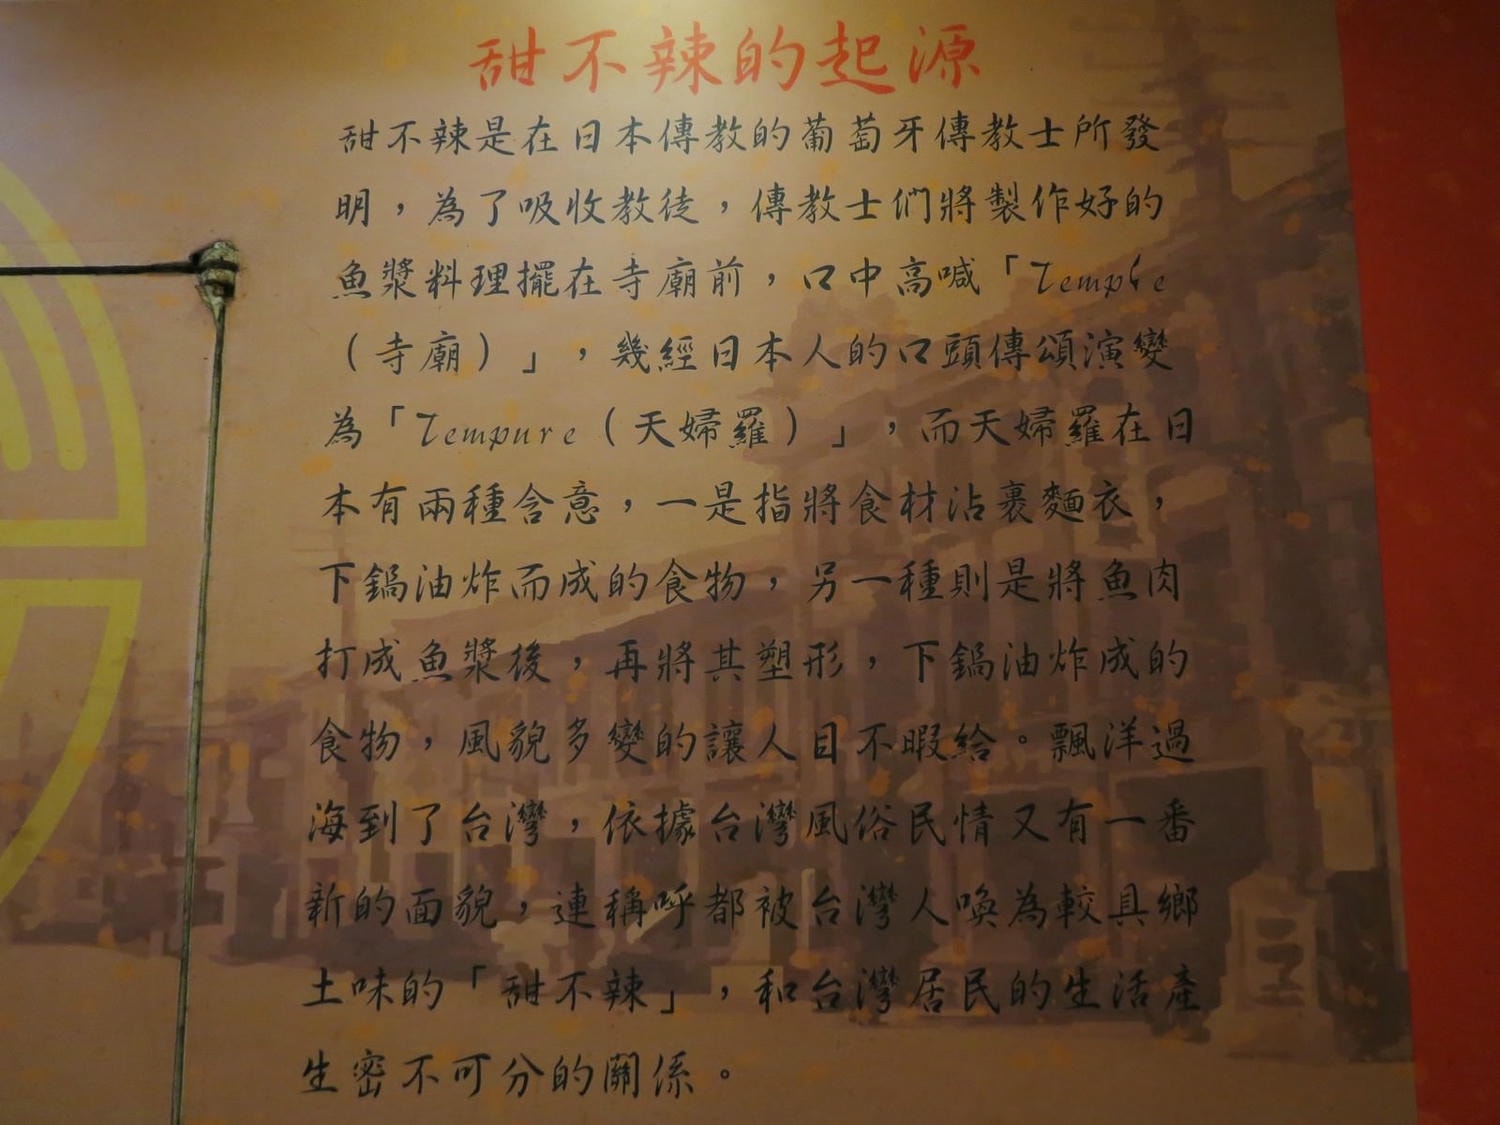 甜不辣的起源
甜不辣是在日本傳教的葡萄牙傳教士所發
明，為了吸收教徒，傳教士們將製作好的
魚漿料理擺在寺廟前，口中高喊「Temple
（寺廟）」，幾經日本人的口頭傳頌演變
為「Tempure（天婦羅）」，而天婦羅在日
本有兩種含意，一是指將食材沾裹麵衣，
下鍋油炸而成的食物，另一種則是將魚肉
打成魚漿後，再將其塑形，下鍋油炸成的
食物，風貌多變的讓人目不暇給。飄洋過
海到了台灣，依據台灣風俗民情又有一番
新的面貌，連稱呼都被台灣人喚為較具鄉
土味的「甜不辣」，和台灣居民的生活產
生密不可分的關係。